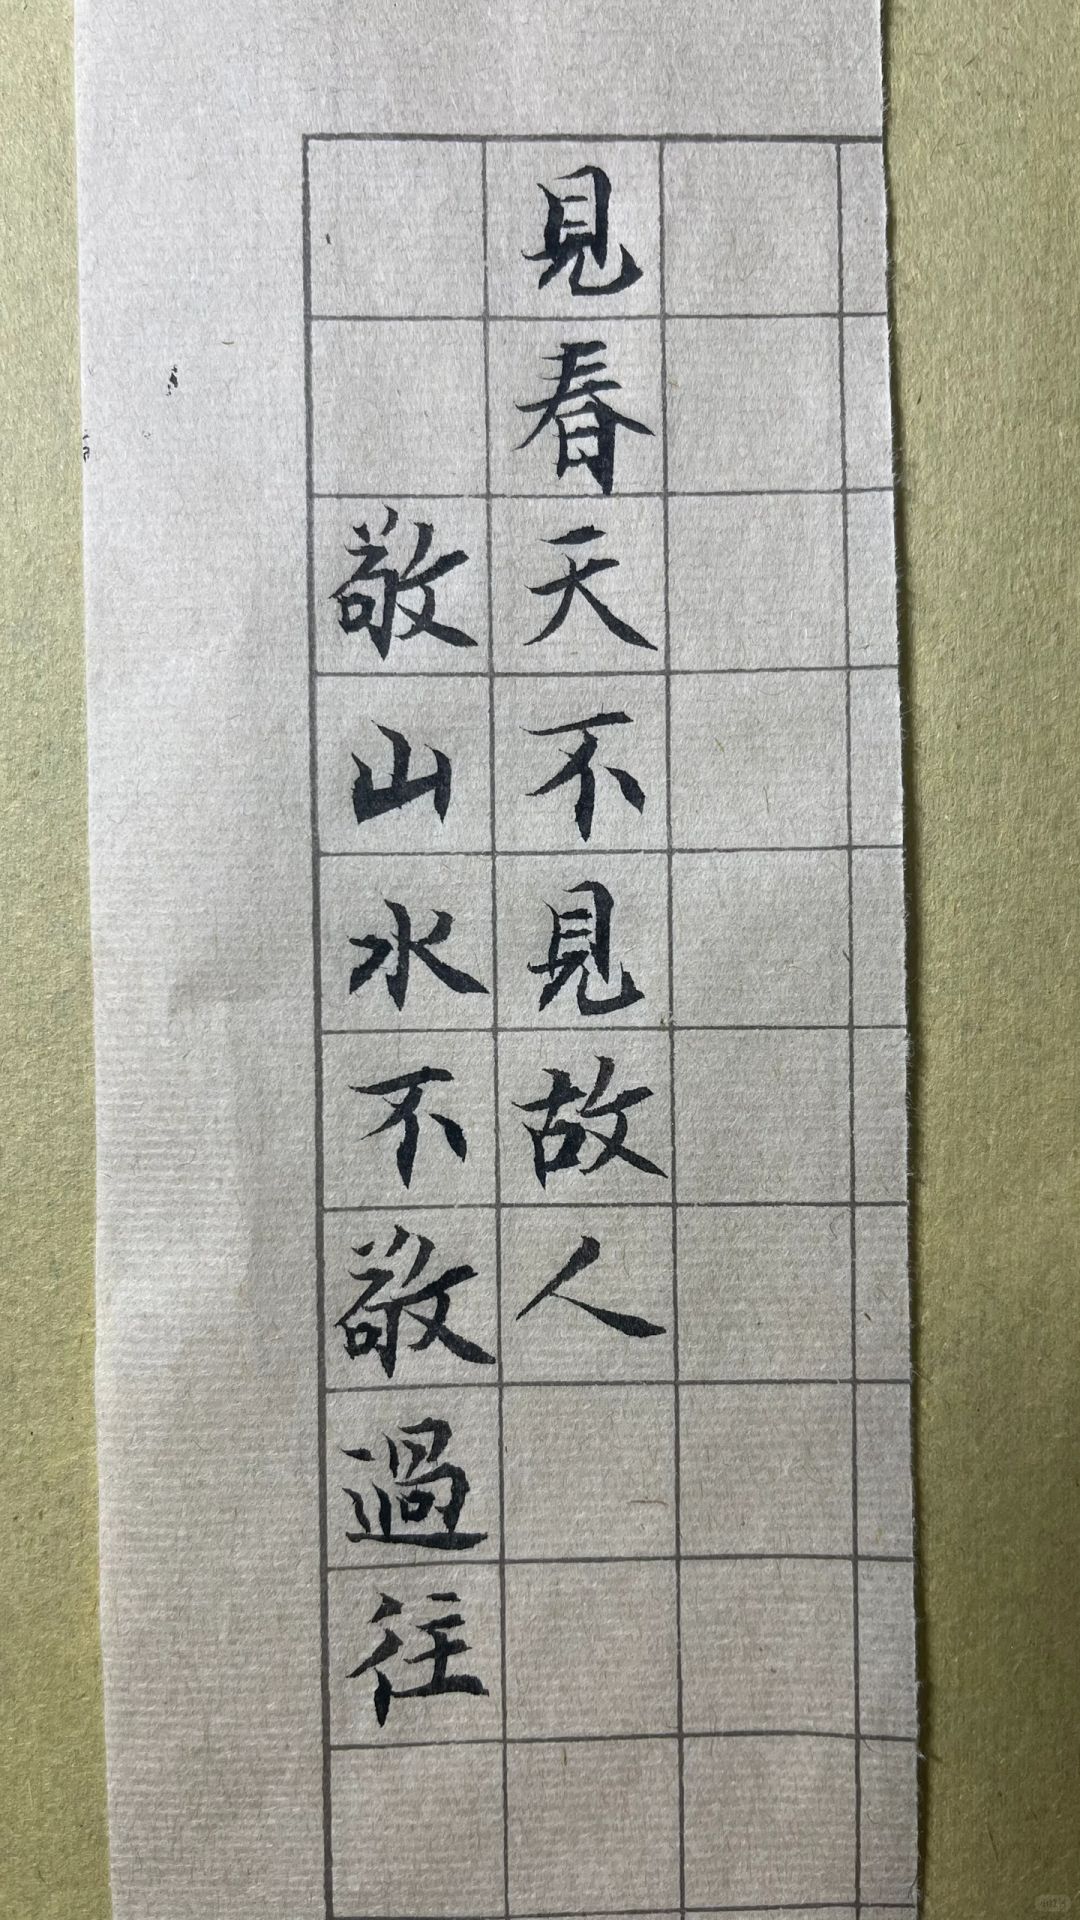 見春天不見故人
敬山水不敬過往